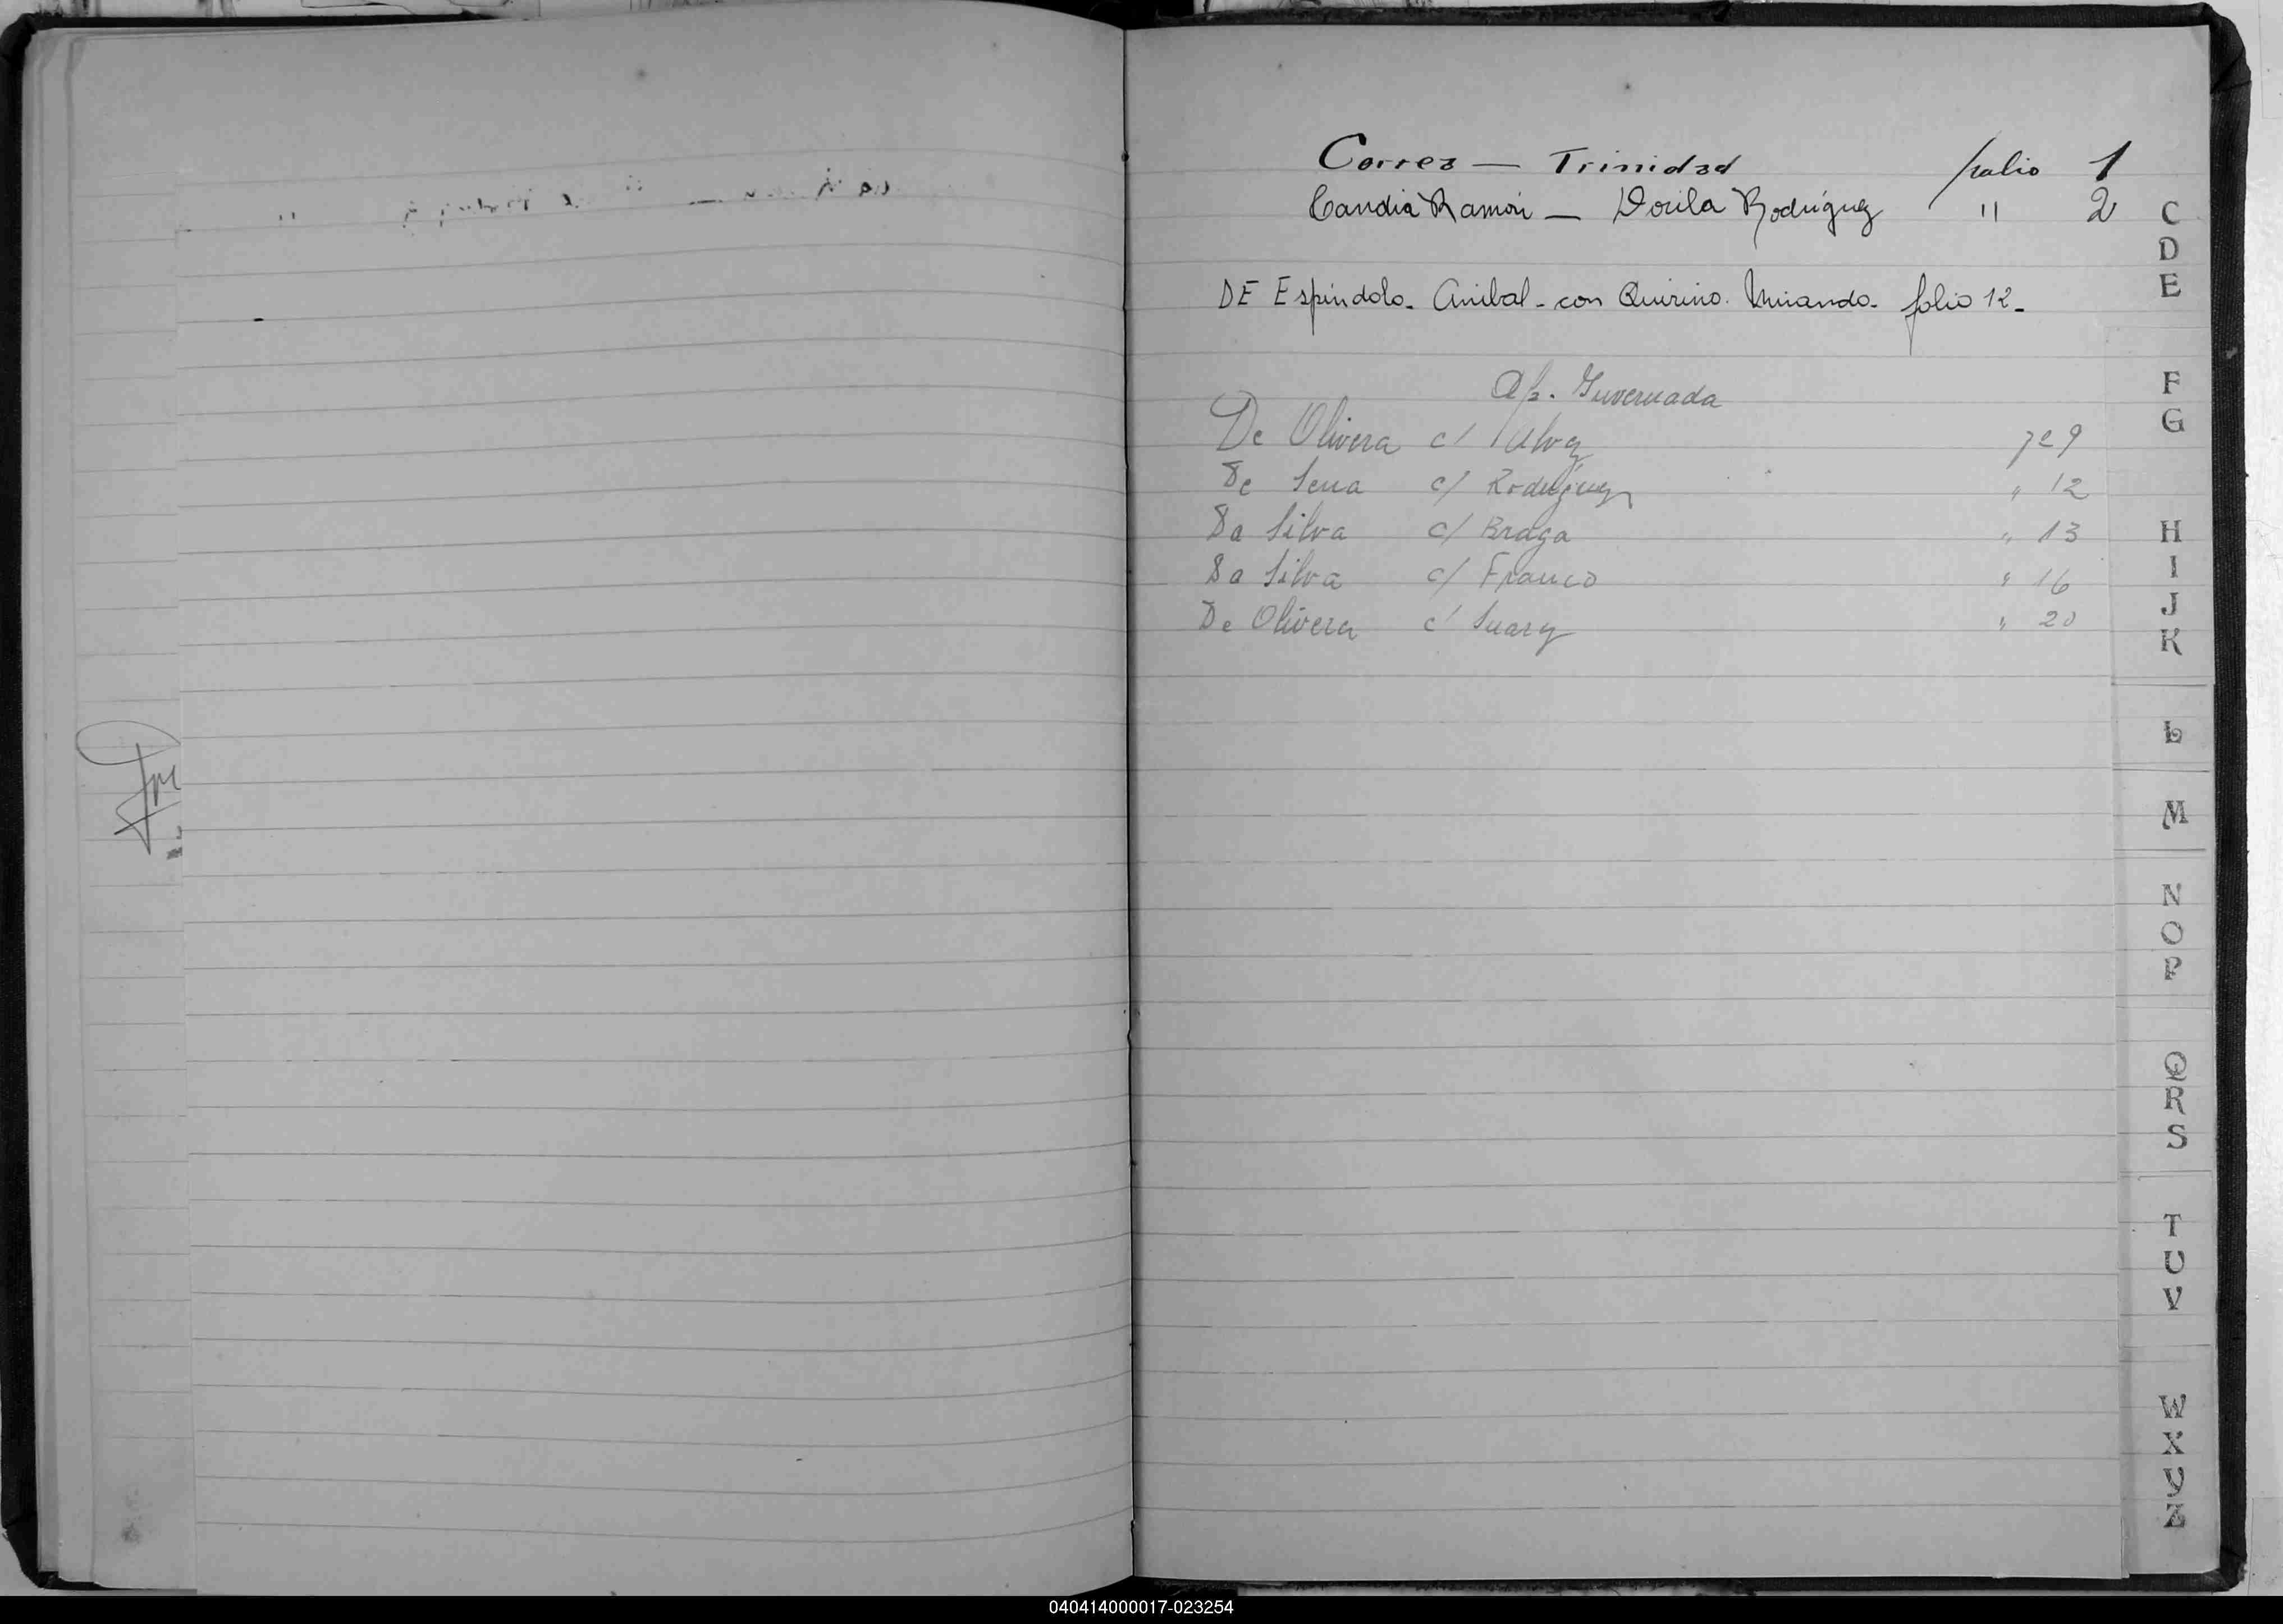 Correa — Trinidad folio 1
Candia Ramón — Dorila Rodríguez " 2
DE Espindola. Anibal - con Quirino. Miranda. folio 12.
Invernada
De Olivera c/ Alvez 9
De Sena c/ Rodriguez " 12
Da Silva c/ Braga " 13
Da Silva c/ Franco " 16
De Olivera c/ Suarez " 20
C
D
E
F
G
H
I
J
K
L
M
N
O
P
Q
R
S
T
U
V
W
X
Y
Z
040414000017-023254